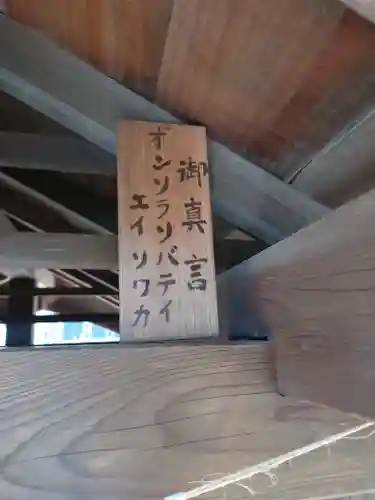 御真言
オンソラソバテイ
エイソワカ